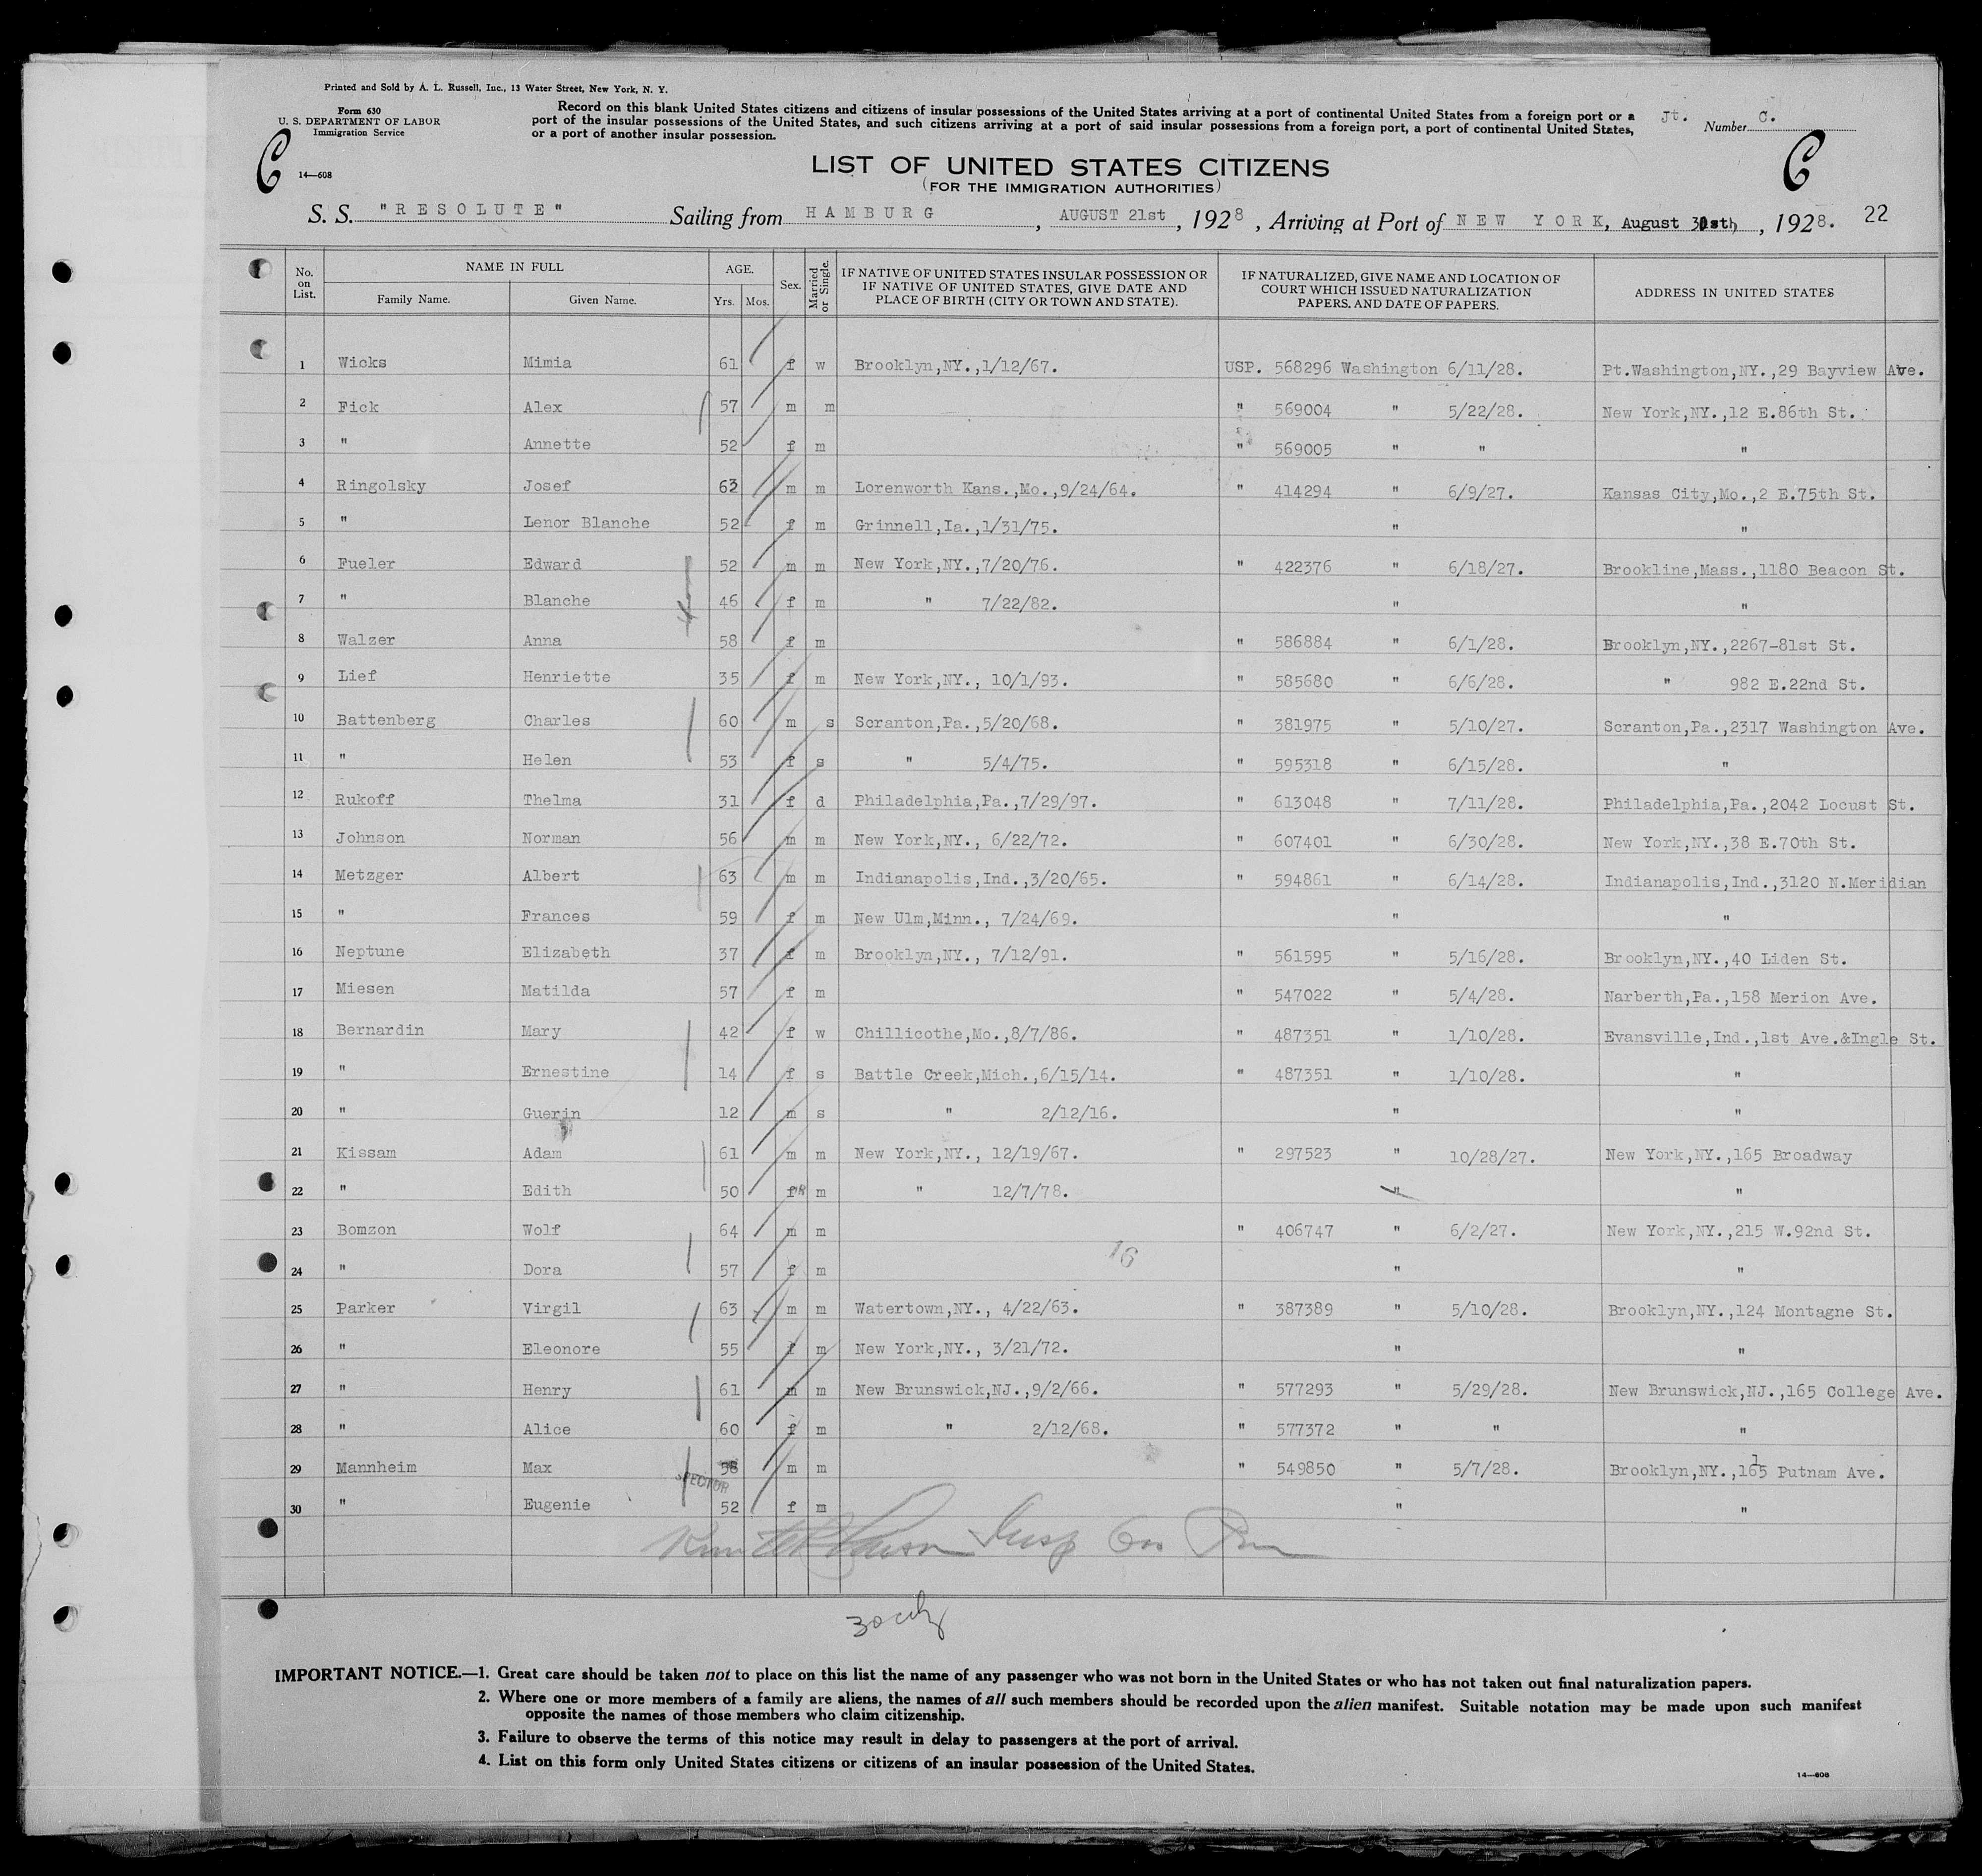 Printed and Sold by A. L. Russell, Inc., 13 Water Street, New York, N. Y.
Form 630
U. S. DEPARTMENT OF LABOR
Immigration Service
Record on this blank United States citizens and citizens of insular possessions of the United States arriving at a port of continental United States from a foreign port or a
port of the insular possessions of the United States, and such citizens arriving at a port of said insular possessions from a foreign port, a port of continental United States,
or a port of another insular possession.
Jt. Number C.
C 14—608 C
LIST OF UNITED STATES CITIZENS
(FOR THE IMMIGRATION AUTHORITIES)
S. S. "RESOLUTE" Sailing from HAMBURG, AUGUST 21st, 1928, Arriving at Port of NEW YORK, August , 1928. 22
No. on List. NAME IN FULL Family Name. Given Name. AGE. Yrs. Mos. Sex. Married or Single. IF NATIVE OF UNITED STATES INSULAR POSSESSION OR IF NATIVE OF UNITED STATES, GIVE DATE AND PLACE OF BIRTH (CITY OR TOWN AND STATE). IF NATURALIZED, GIVE NAME AND LOCATION OF COURT WHICH ISSUED NATURALIZATION PAPERS, AND DATE OF PAPERS. ADDRESS IN UNITED STATES
1 Wicks Mimia 61 f w Brooklyn,NY.,1/12/67. USP. 568296 Washington 6/11/28. Pt.Washington,NY.,29 Bayview Ave.
2 Fick Alex 57 m m " 569004 " 5/22/28. New York,NY.,12 E.86th St.
3 " Annette 52 f m " 569005 " " "
4 Ringolsky Josef 63 m m Lorenworth Kans.,Mo.,9/24/64. " 414294 " 6/9/27. Kansas City,Mo.,2 E.75th St.
5 " Lenor Blanche 52 f m Grinnell,Ia.,1/31/75. " "
6 Fueler Edward 52 m m New York,NY.,7/20/76. " 422376 " 6/18/27. Brookline,Mass.,1180 Beacon St.
7 " Blanche 46 f m " 7/22/82. " "
8 Walzer Anna 58 f m " 586884 " 6/1/28. Brooklyn,NY.,2267-81st St.
9 Lief Henriette 35 f m New York,NY., 10/1/93. " 585680 " 6/6/28. " 982 E.22nd St.
10 Battenberg Charles 60 m s Scranton,Pa.,5/20/68. " 381975 " 5/10/27. Scranton,Pa.,2317 Washington Ave.
11 " Helen 53 f s " 5/4/75. " 595318 " 6/15/28. "
12 Rukoff Thelma 31 f d Philadelphia,Pa.,7/29/97. " 613048 " 7/11/28. Philadelphia,Pa.,2042 Locust St.
13 Johnson Norman 56 m m New York,NY., 6/22/72. " 607401 " 6/30/28. New York,NY.,38 E.70th St.
14 Metzger Albert 63 m m Indianapolis,Ind.,3/20/65. " 594861 " 6/14/28. Indianapolis,Ind.,3120 N.Meridian
15 " Frances 59 f m New Ulm,Minn., 7/24/69. " "
16 Neptune Elizabeth 37 f m Brooklyn,NY., 7/12/91. " 561595 " 5/16/28. Brooklyn,NY.,40 Liden St.
17 Miesen Matilda 57 f m " 547022 " 5/4/28. Narberth,Pa.,158 Merion Ave.
18 Bernardin Mary 42 f w Chillicothe,Mo.,8/7/86. " 487351 " 1/10/28. Evansville,Ind.,1st Ave.&Ingle St.
19 " Ernestine 14 f s Battle Creek,Mich.,6/15/14. " 487351 " 1/10/28. "
20 " Guerin 12 m s " 2/12/16. " "
21 Kissam Adam 61 m m New York,NY., 12/19/67. " 297523 " 10/28/27. New York,NY.,165 Broadway
22 " Edith 50 f m " 12/7/78. " "
23 Bomzon Wolf 64 m m " 406747 " 6/2/27. New York,NY.,215 W.92nd St.
24 " Dora 57 f m 16 " "
25 Parker Virgil 63 m m Watertown,NY., 4/22/63. " 387389 " 5/10/28. Brooklyn,NY.,124 Montagne St.
26 " Eleonore 55 f m New York,NY., 3/21/72. " "
27 " Henry 61 m m New Brunswick,NJ.,9/2/66. " 577293 " 5/29/28. New Brunswick,NJ.,165 College Ave.
28 " Alice 60 f m " 2/12/68. " 577372 " " "
29 Mannheim Max m m " 549850 " 5/7/28. Brooklyn,NY.,165 Putnam Ave.
30 " Eugenie 52 f m " "
Insp
30
IMPORTANT NOTICE.—1. Great care should be taken not to place on this list the name of any passenger who was not born in the United States or who has not taken out final naturalization papers.
2. Where one or more members of a family are aliens, the names of all such members should be recorded upon the alien manifest. Suitable notation may be made upon such manifest
opposite the names of those members who claim citizenship.
3. Failure to observe the terms of this notice may result in delay to passengers at the port of arrival.
4. List on this form only United States citizens or citizens of an insular possession of the United States.
14—608